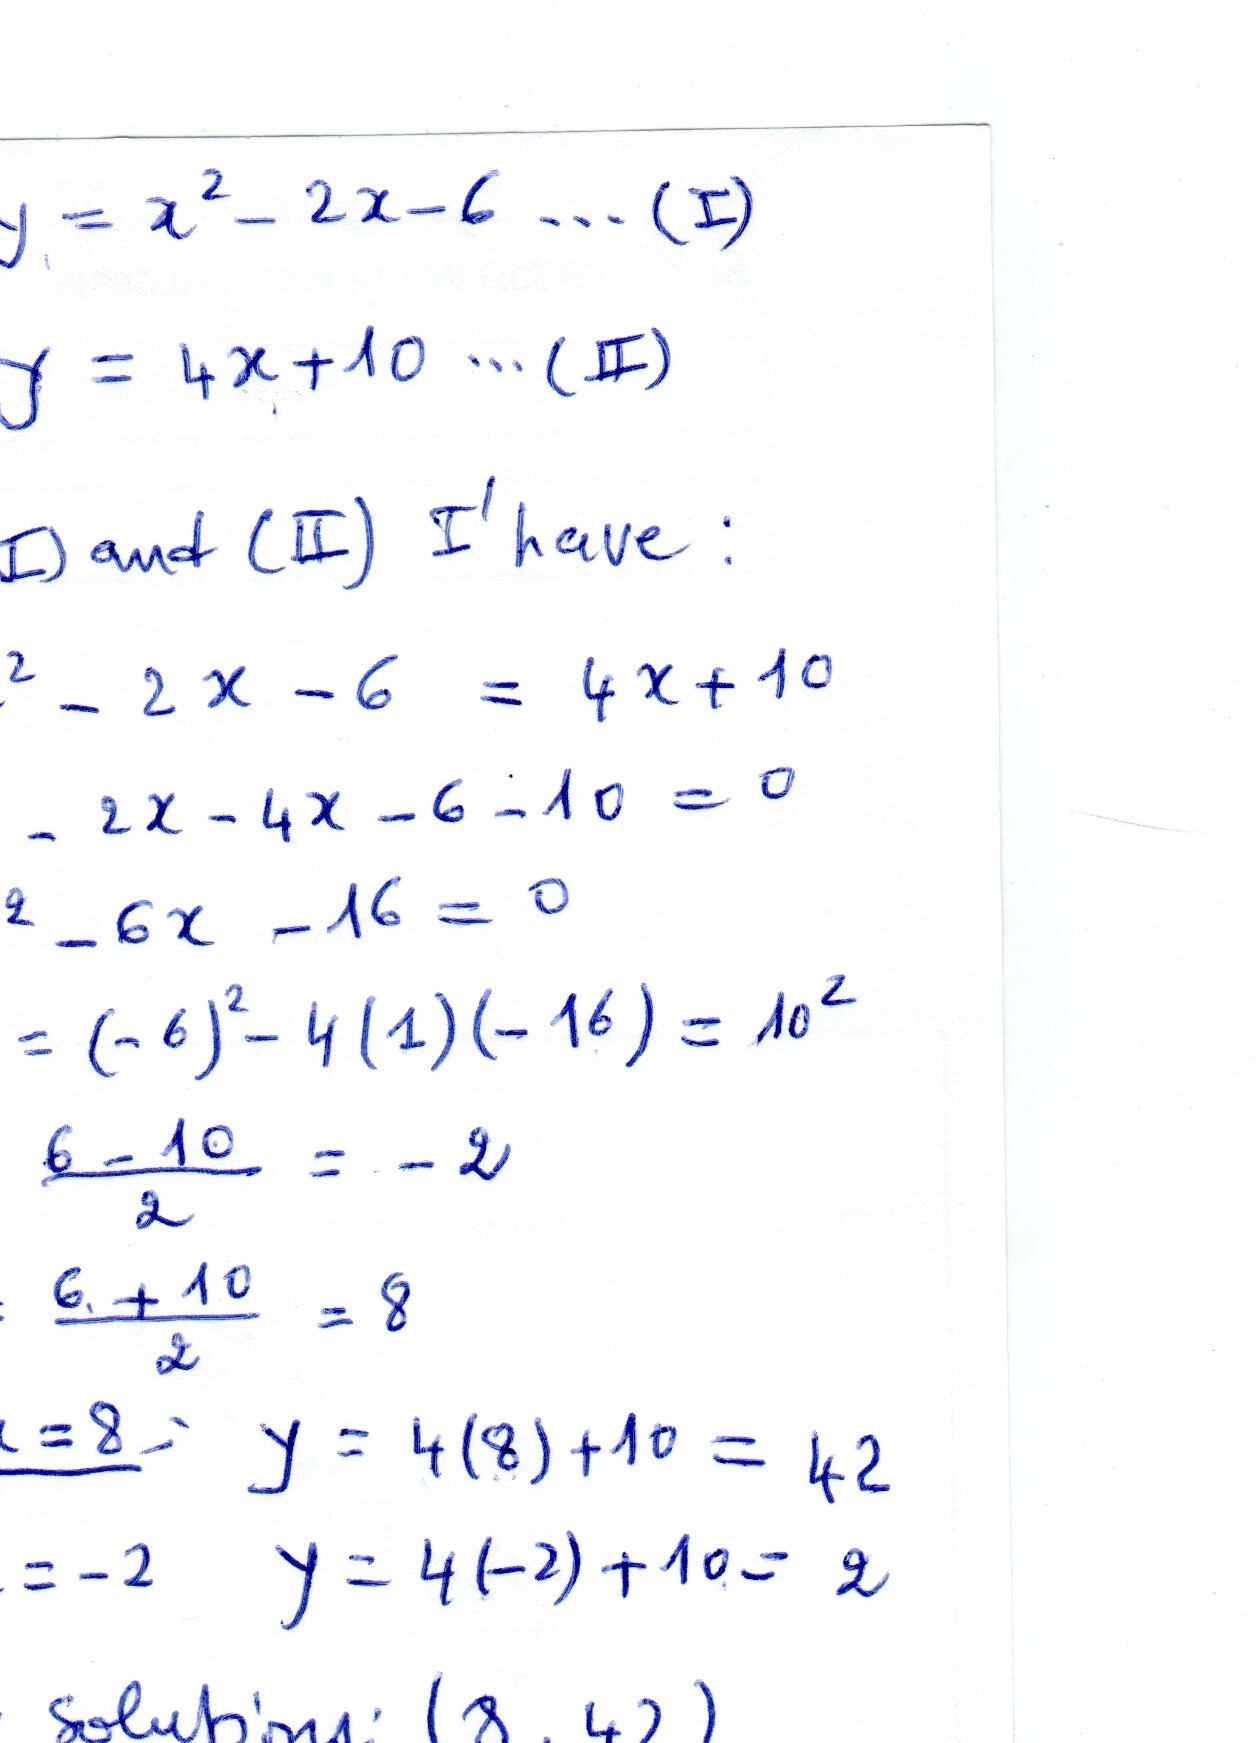 y = x² - 2x - 6 ... (I)
y = 4x + 10 ... (II)
I) and (II) I' have :
² - 2x - 6 = 4x + 10
- 2x - 4x - 6 - 10 = 0
² - 6x - 16 = 0
= (-6)² - 4(1)(-16) = 10²
6 - 10 / 2 = - 2
= 6 + 10 / 2 = 8
x = 8 : y = 4(8) + 10 = 42
= -2 y = 4(-2) + 10 = 2
solutions: (8, 42)